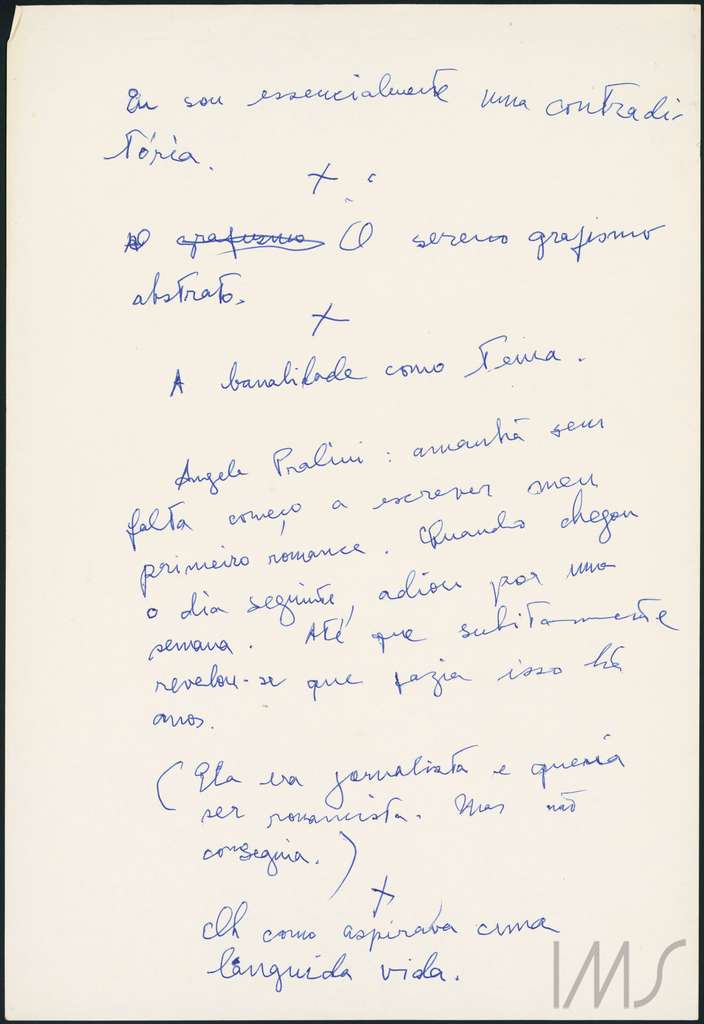 Eu sou essencialmente uma contradi-
tória.
+
O grafismo O sereno grafismo
abstrato.
+
A banalidade como tema.
Angela Pralini: amanhã sem
falta começo a escrever meu
primeiro romance. Quando chegou
o dia seguinte, adiou por uma
semana. Até que subitamente
revelou-se que fazia isso há
anos.
(Ela era jornalista e queria
ser romancista. Mas não
conseguia.)
+
Ah como aspirava a uma
languida vida.
IMS